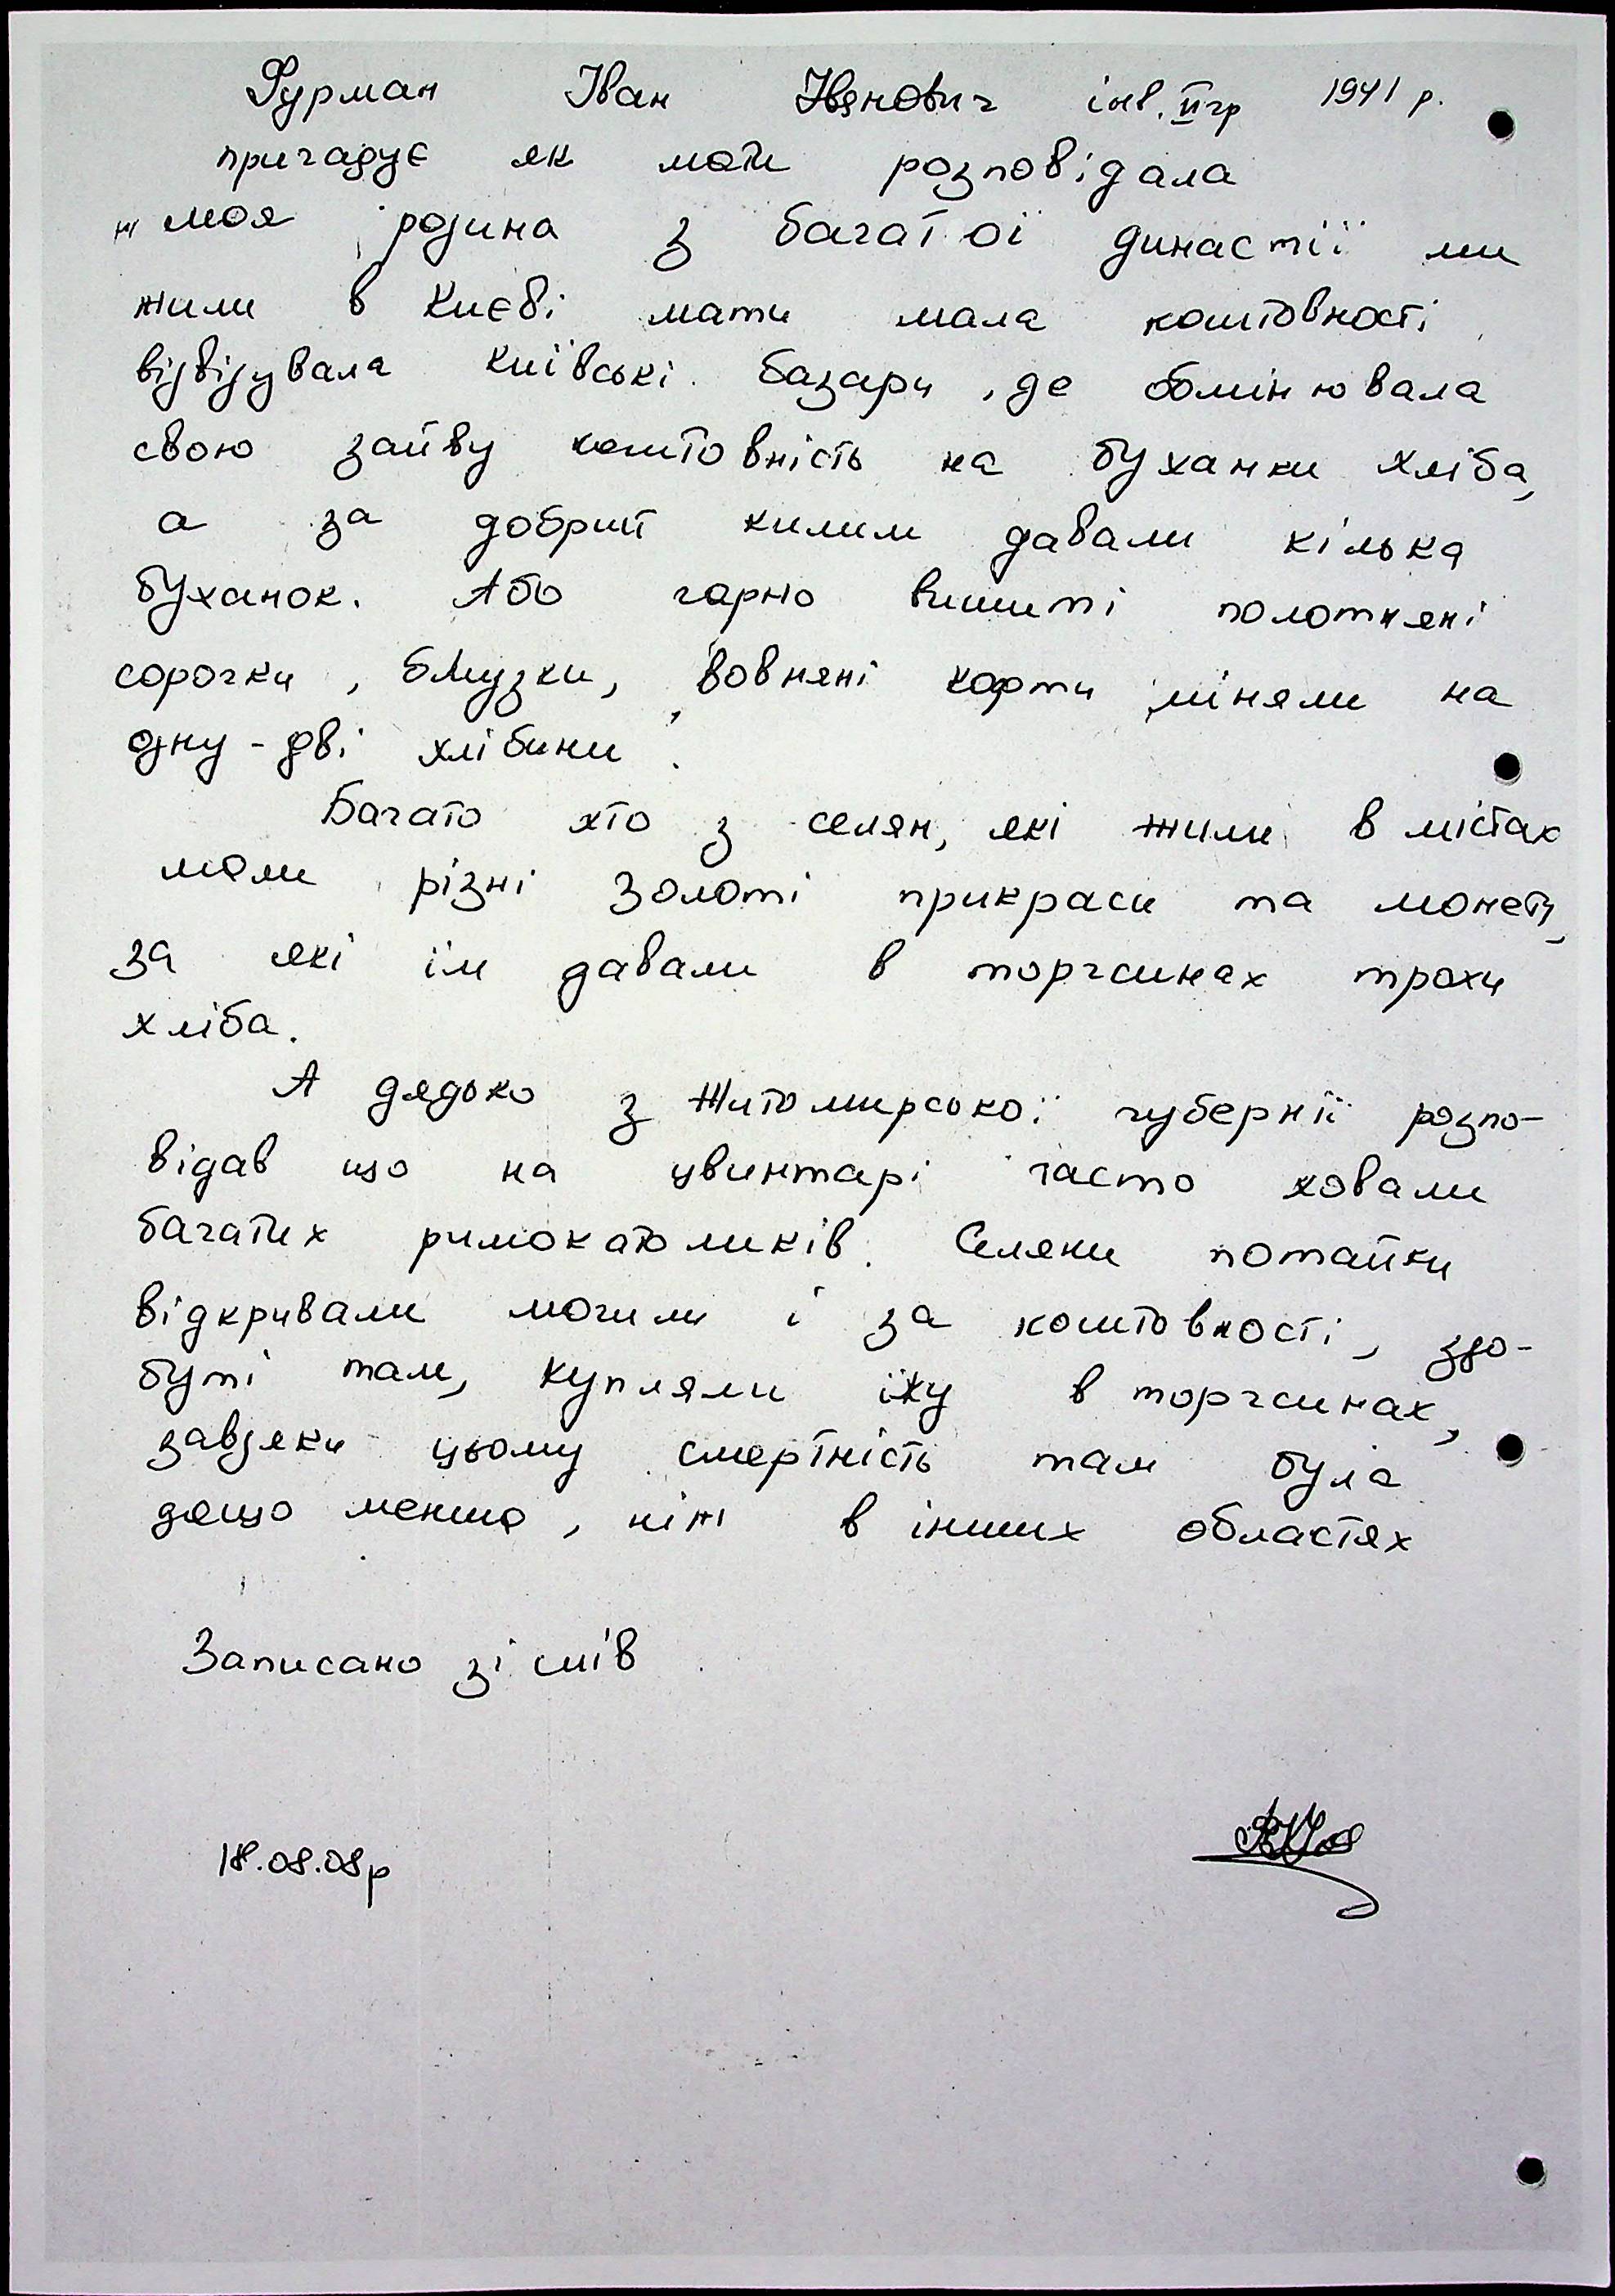 Фурман Іван Іванович інв. II гр 1941 р.
пригадує як мати розповідала
"моя родина з багатої династії ми
жили в Києві мати мала коштовності
відвідувала київські базари, де обмінювала
свою зайву коштовність на буханки хліба,
а за добрий килим давали кілька
буханок. Або гарно вишиті полотняні
сорочки, блузки, вовняні кофти міняли на
одну-дві хлібини".
Багато хто з селян, які жили в містах
мали різні золоті прикраси та монети,
за які їм давали в торгсинах трохи
хліба.
А дядько з Житомирської губернії розпо-
відав що на цвинтарі часто ховали
багатих римокатоликів. Селяни потайки
відкривали могили і за коштовності, здо-
буті там, купляли їжу в торгсинах,
завдяки цьому смертність там була
дещо менша, ніж в інших областях
Записано зі слів
18.08.08р